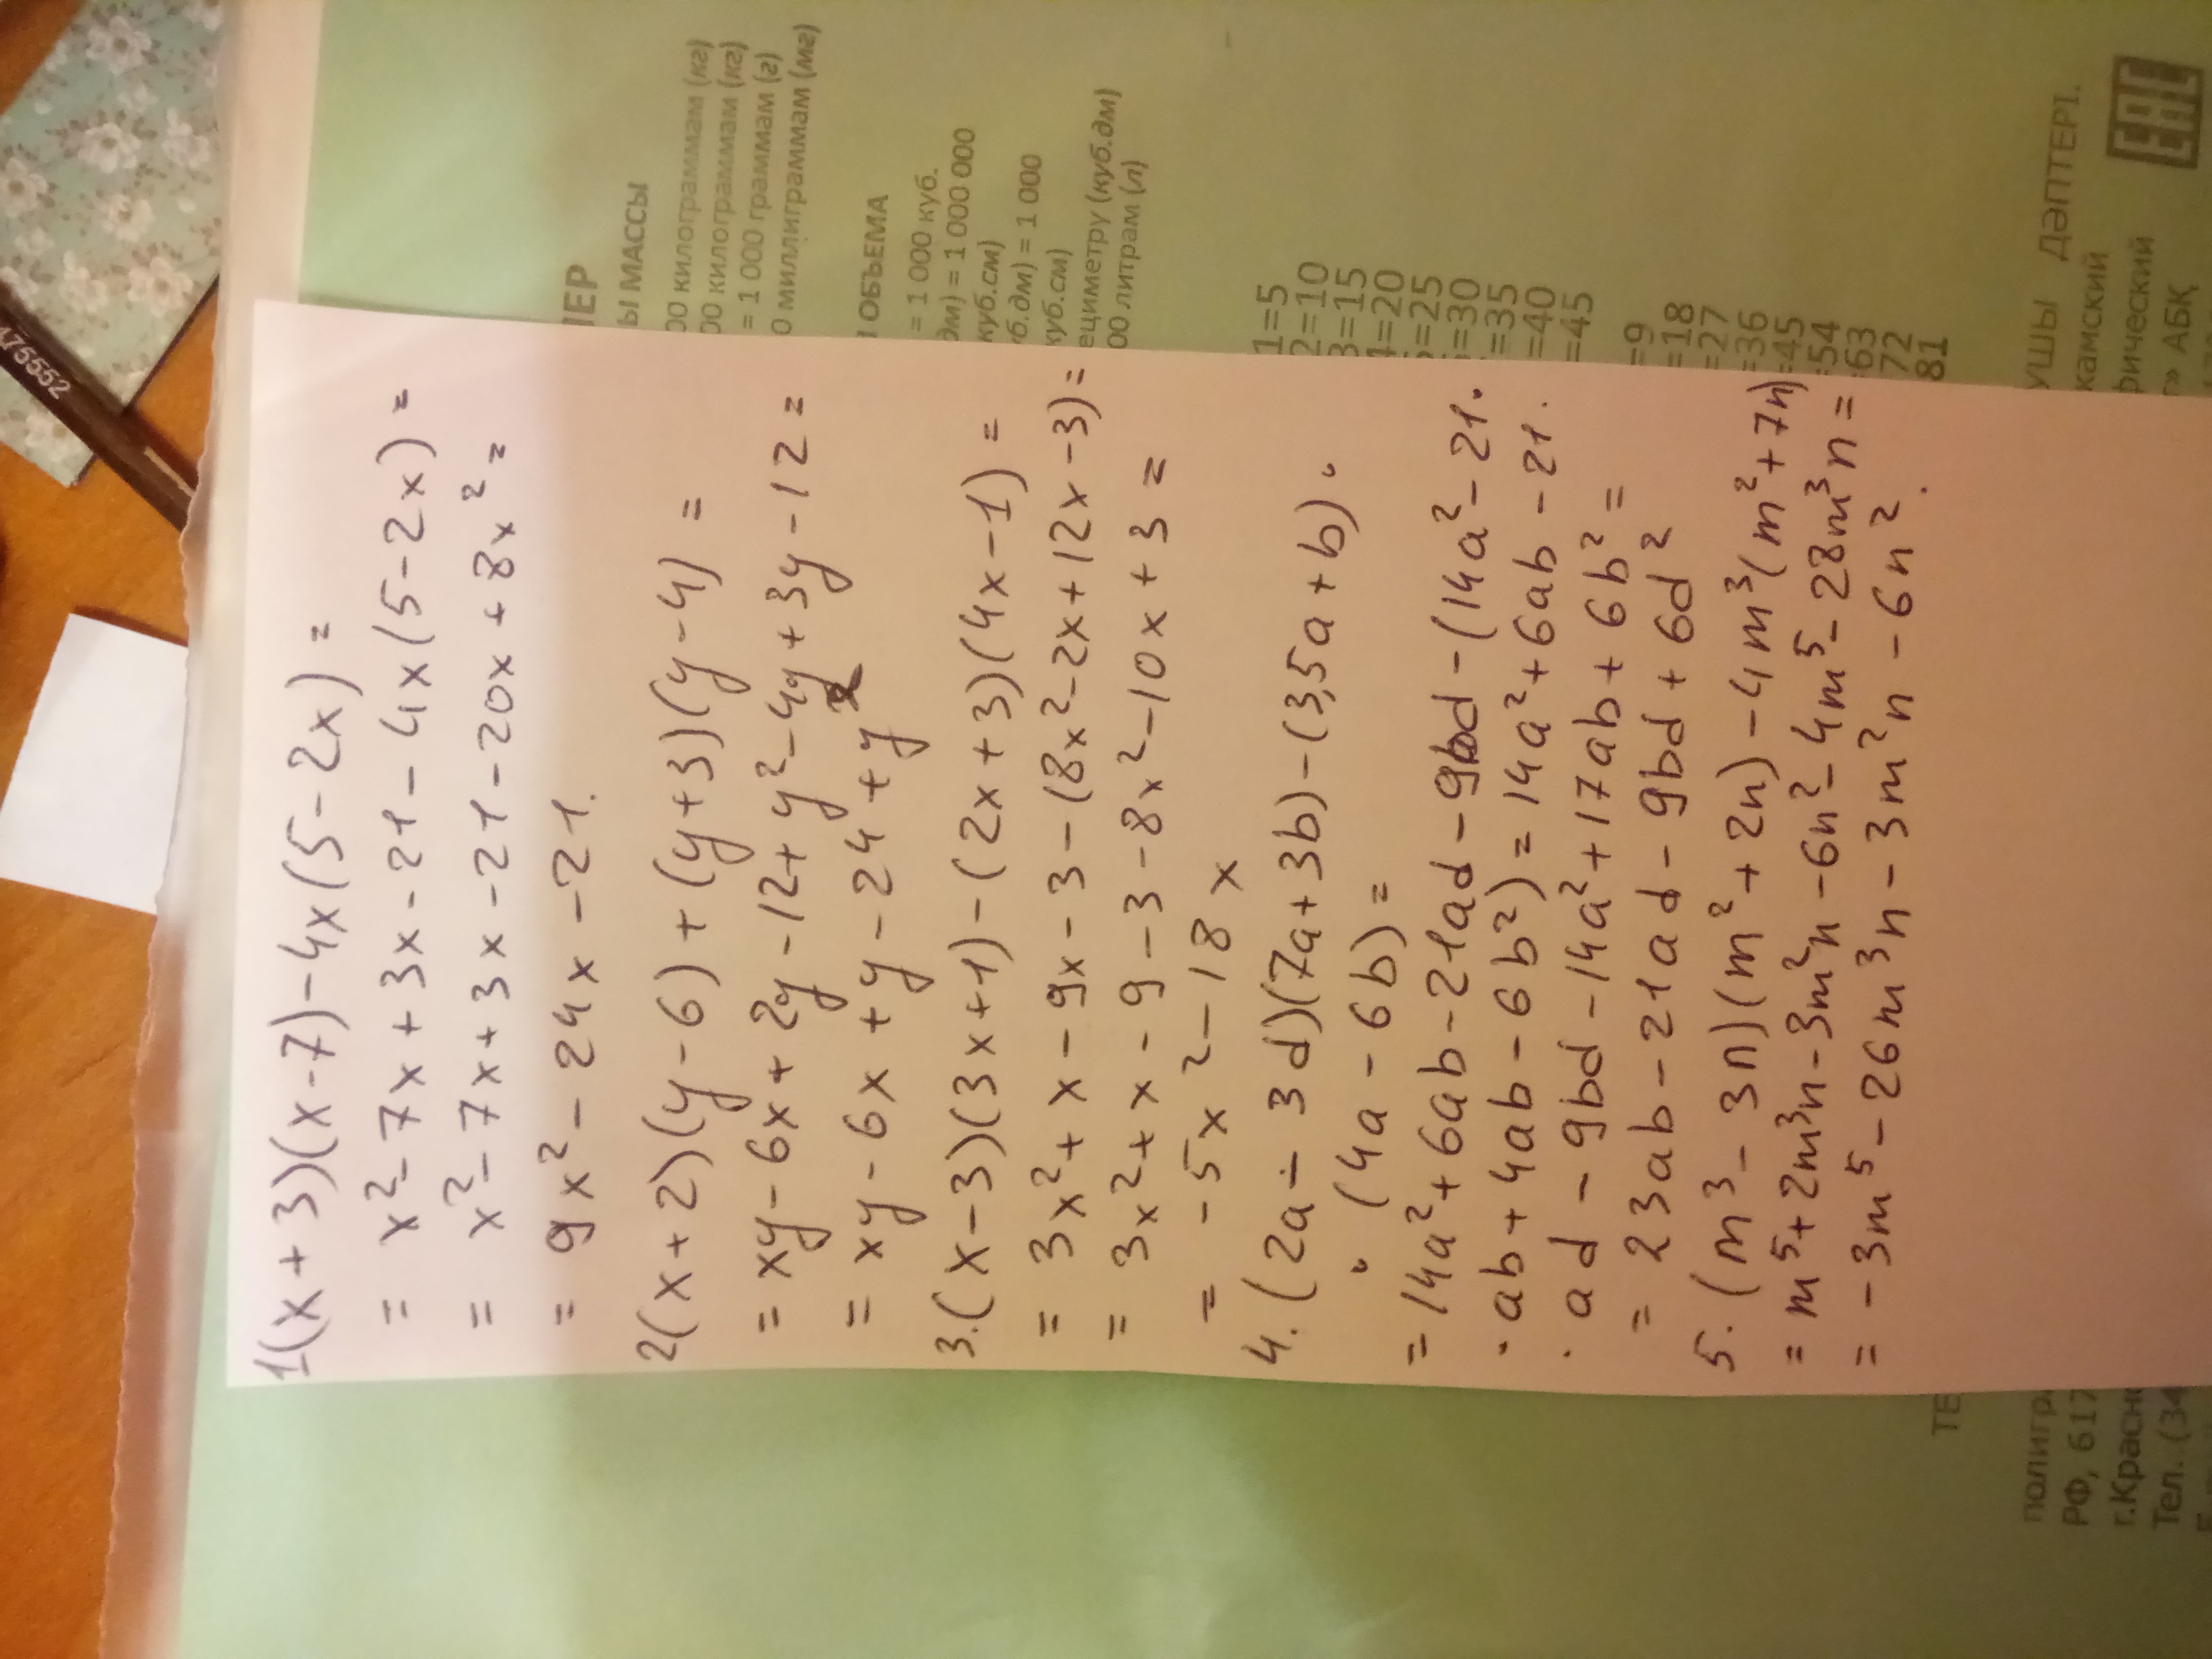 1(x+3)(x-7)-4x(5-2x)=
= x²-7x+3x-21-4x(5-2x)=
= x²-7x+3x-21-20x+8x²=
= 9x²-24x-21.
2(x+2)(y-6)+(y+3)(y-4)=
= xy-6x+2y-12+y²-4y+3y-12=
= xy-6x+y-24+y²
3.(x-3)(3x+1)-(2x+3)(4x-1)=
= 3x²+x-9x-3-(8x²-2x+12x-3)=
= 3x²+x-9-3-8x²-10x+3=
= -5x²-18x
4.(2a-3d)(7a+3b)-(3,5a+b)·
·(4a-6b)=
=14a²+6ab-21ad-9bd-(14a²-21·
·ab+4ab-6b²)=14a²+6ab-21·
·ad-9bd-14a²+17ab+6b²=
= 23ab-21ad-9bd+6d²
5.(m³-3n)(m²+2n)-4m³(m²+7n)
=m⁵+2m³n-3m²n-6n²-4m⁵-28m³n=
=-3m⁵-26m³n-3m²n-6n².
475552
ІЕР
Ы МАССЫ
00 килограммам (кг)
00 килограммам (кг)
= 1 000 граммам (г)
0 миллиграммам (мг)
ОБЪЕМА
= 1 000 куб.
дм) = 1 000 000
куб.см)
уб.дм) = 1 000
куб.см)
ециметру (куб.дм)
00 литрам (л)
1=5
2=10
3=15
4=20
5=25
=30
=35
=40
=45
=9
=18
=27
=36
=45
=54
63
72
81
УШЫ ДӘПТЕРІ.
камский
фический
» АБК
EAC
ТЕ
полигр
РФ, 617
г.Красн
Тел. (34